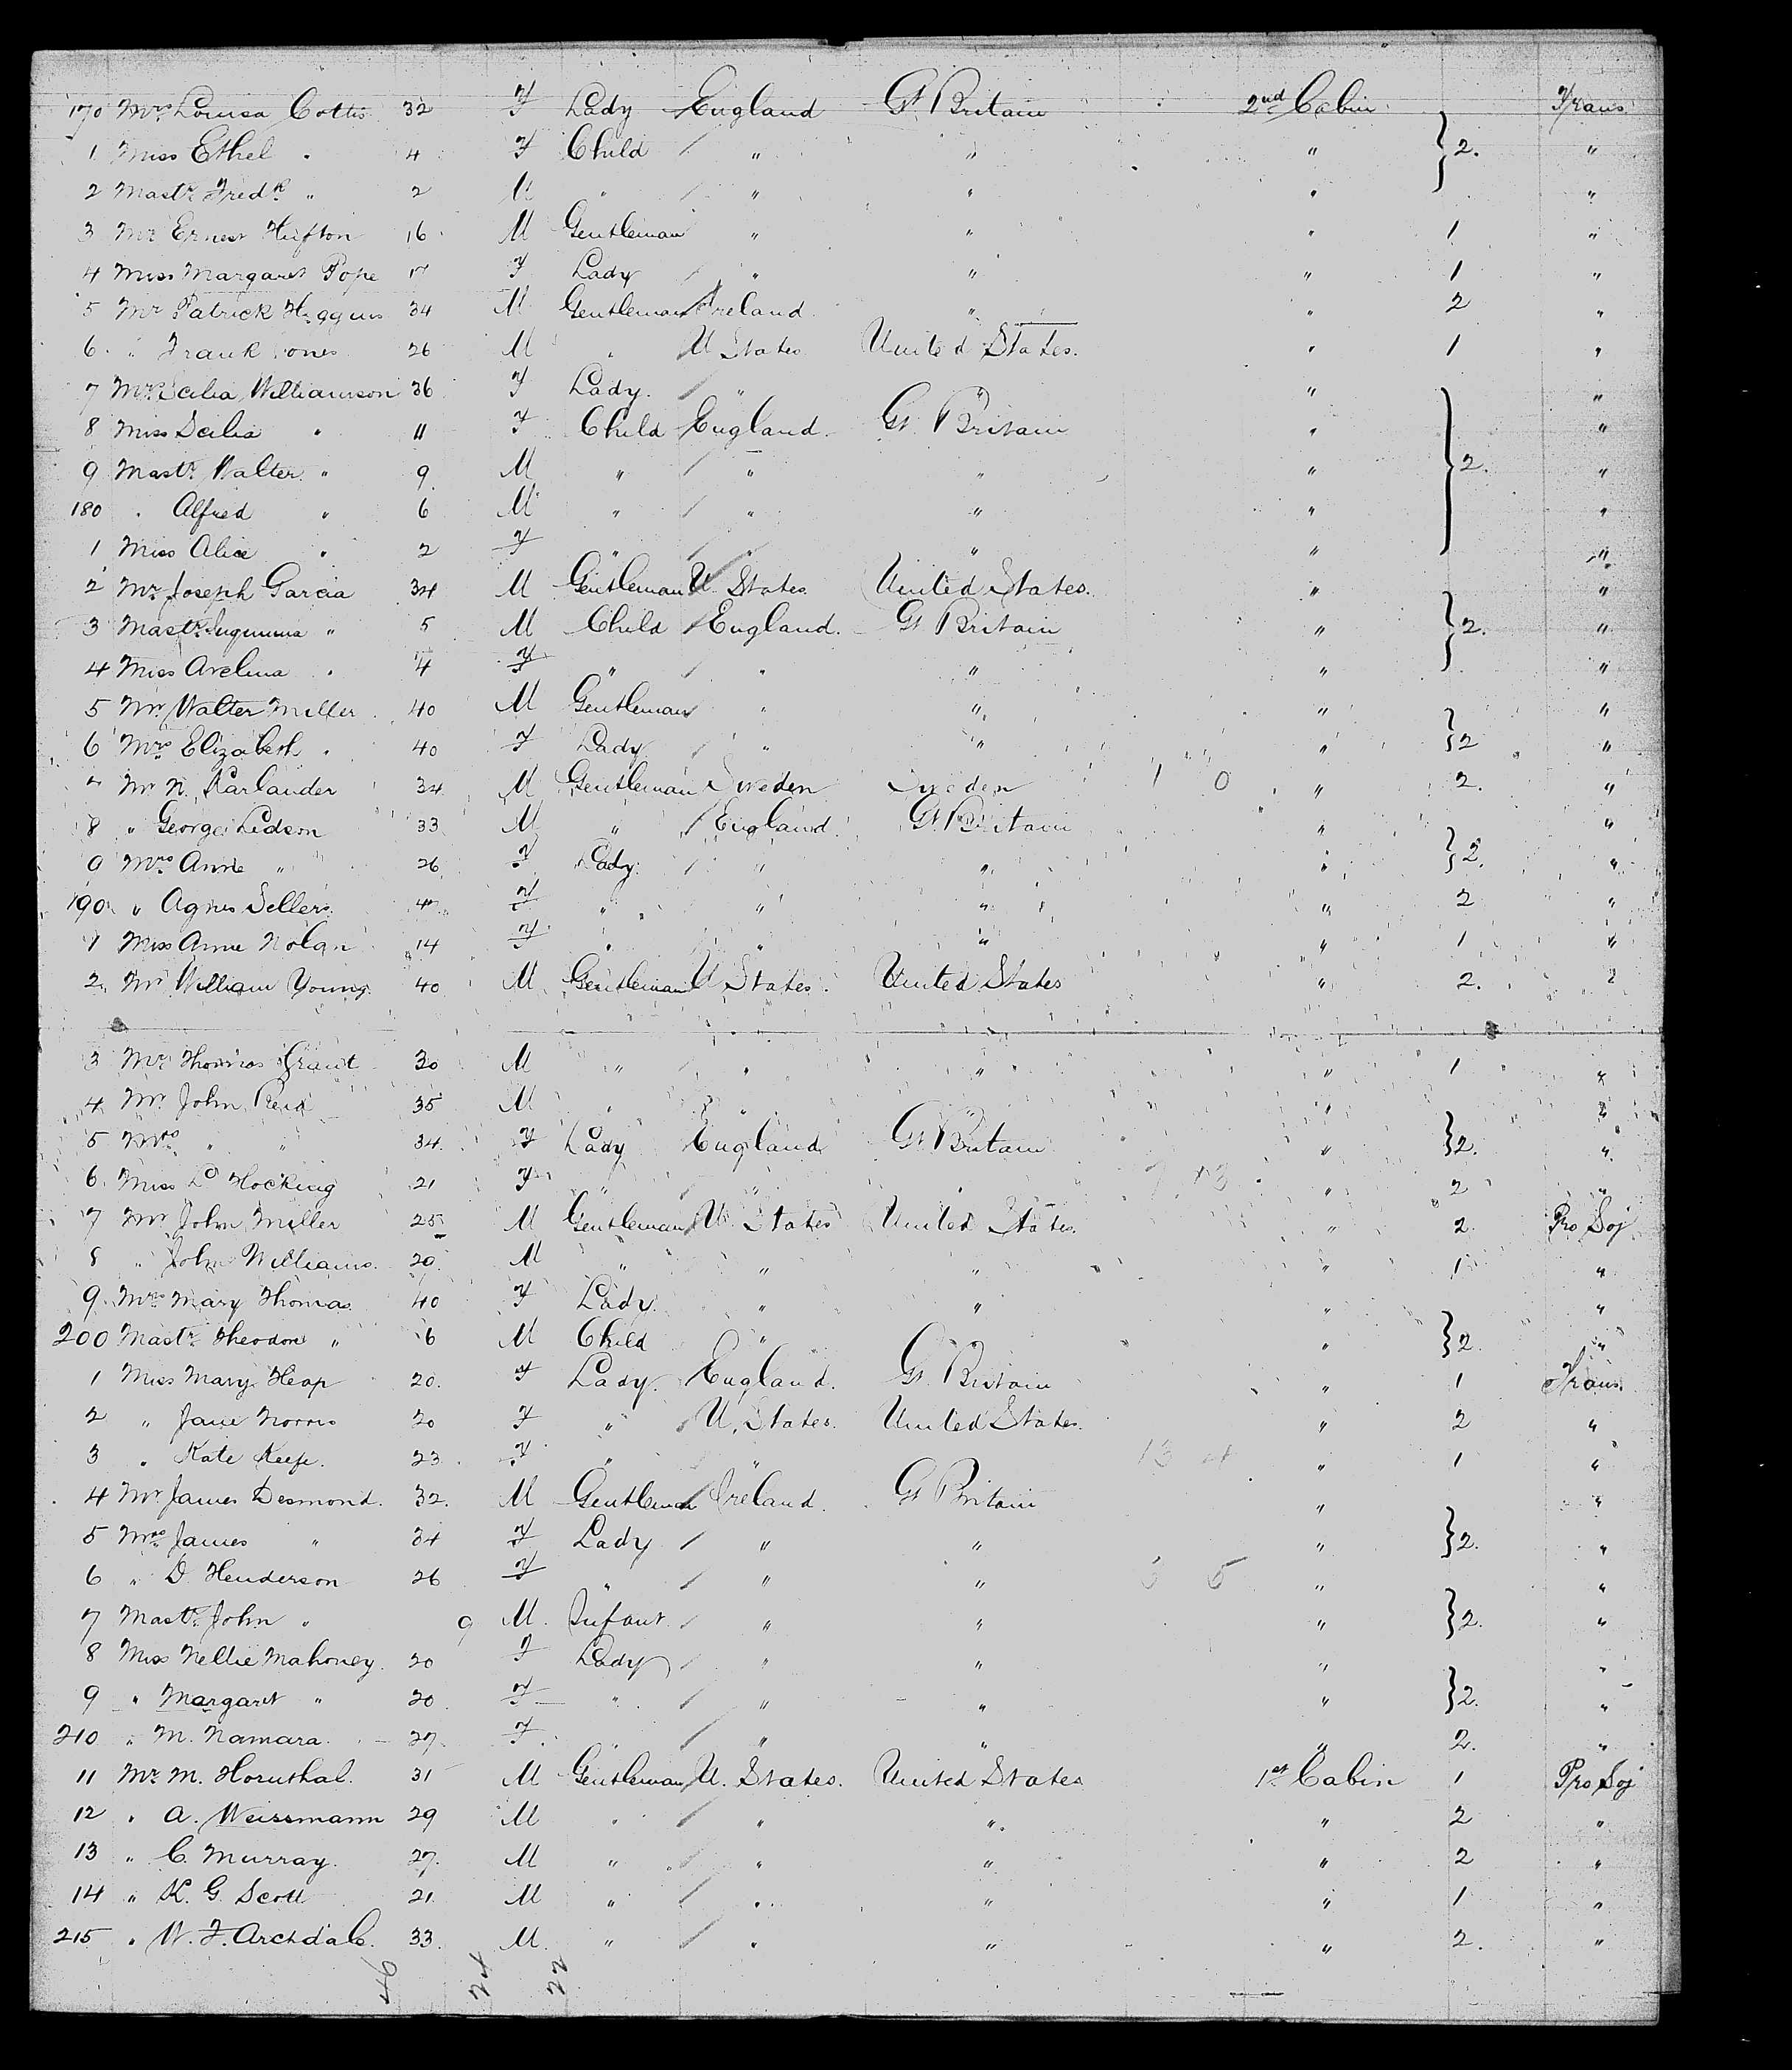 170 Mrs Louisa Cottis 32 F Lady England Gt Britain 2nd Cabin Trans
1 Miss Ethel " 4 F Child " " " } 2. "
2 Mastr Fredk " 2 M " " " " "
3 Mr Ernest Hufton 16 M Gentleman " " " 1 "
4 Miss Margaret Pope 17 F Lady " " " 1 "
5 Mr Patrick Higgins 34 M Gentleman Ireland " " 2 "
6 " Frank Jones 26 M " U States United States. " 1 "
7 Mrs Williamson 36 F Lady. " " " "
8 Miss " 11 F Child England. Gt Britain " "
9 Mastr Walter " 9 M " " " " } 2. "
180 " Alfred " 6 M " " " " "
1 Miss Alice " 2 F " " " " "
2 Mr Joseph Garcia 34 M Gentleman U. States United States. " "
3 Mastr " 5 M Child England. Gt Britain " } 2. "
4 Miss Avelina " 4 F " " " " "
5 Mr Walter Miller 40 M Gentleman " " " "
6 Mrs Elizabeth " 40 F Lady " " " } 2 "
7 Mr N. Karlander 34 M Gentleman Sweden Sweden 1 0 " 2. "
8 " George Ledson 33 M " England. Gt Britain " "
9 Mrs Annie " 26 F Lady " " " } 2. "
190 " Agnes Sellers 4 F " " " " 2 "
1 Miss Annie Nolan 14 F " " " " 1 "
2 Mr William Young 40 M Gentleman U States. United States " 2. "
3 Mr Thomas Grant 30 M " " " " 1 "
4 Mr John Reid 35 M " " " " "
5 Mrs " " 34 F Lady England Gt Britain " } 2. "
6 Miss Hocking 21 F " " " " 2 "
7 Mr John Miller 25 M Gentleman U. States United States. " 2. Pro Soj
8 " John Williams. 20 M " " " " 1 "
9. Mrs Mary Thomas 40 F Lady " " " "
200 Mastr Theodore " 6 M Child " " } 2. "
1 Miss Mary Heap 20. F Lady. England. Gt Britain " 1 Trans.
2 " Jane Norris 20 F " U. States. United States. " 2 "
3 " Kate Keefe. 23 F " " " 13 4 " 1 "
4 Mr James Desmond. 32. M Gentleman Ireland. Gt Britain " "
5 Mrs James " 34 F Lady " " " } 2. "
6 " D. Henderson 26 F " " " 3 5 " "
7 Mastr John " 9 M. Infant " " " } 2. "
8 Miss Nellie Mahoney. 20 F Lady " " " "
9 " Margaret " 20 F " " " " } 2. "
210 " M. Namara. 27. F. " " " " 2. "
11 Mr M. Hornthal. 31 M Gentleman U. States. United States 1st Cabin 1 Pro Soj
12 " A. Weissmann 29 M " " " " 2 "
13 " C. Murray. 27. M " " " " 2 "
14 " K. G. Scott 21. M " " " " 1 "
215 " W. F. Archdale. 33. M. " " " " 2. "
46 24 22